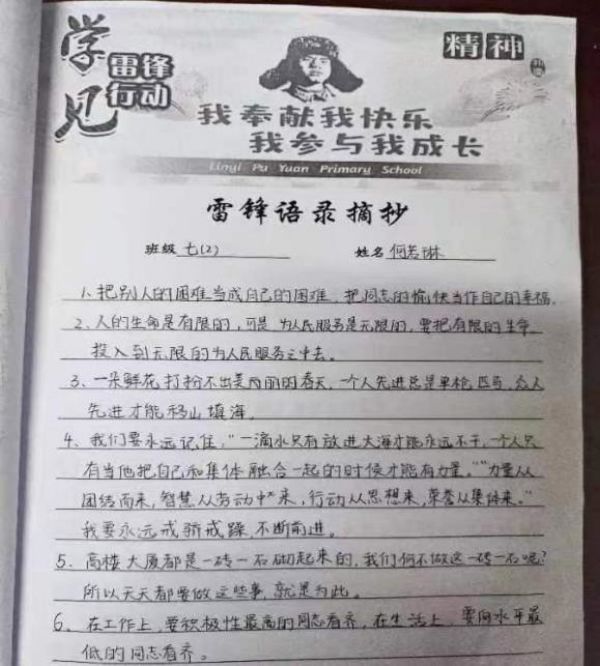 学
见
雷锋
行动
精神
我奉献我快乐
我参与我成长
Linyi Pu Yuan Primary School
雷锋语录摘抄
班级 七(2) 姓名 何若琳
1、把别人的困难当成自己的困难，把同志的愉快当作自己的幸福。
2、人的生命是有限的，可是为人民服务是无限的，要把有限的生命
投入到无限的为人民服务之中去。
3、一朵鲜花打扮不出美丽的春天，一个人先进总是单枪匹马，众人
先进才能移山填海。
4、我们要永远记住，"一滴水只有放进大海才能永远不干，一个人只
有当他把自己和集体融合一起的时候才能有力量。""力量从
团结而来，智慧从劳动中来，行动从思想来，荣誉从集体来。"
我要永远戒骄戒躁，不断前进。
5、高楼大厦都是一砖一石砌起来的，我们何不做这一砖一石呢？
所以天天都要做这些事，就是为此。
6、在工作上，要积极性最高的同志看齐，在生活上，要向水平最
低的同志看齐。